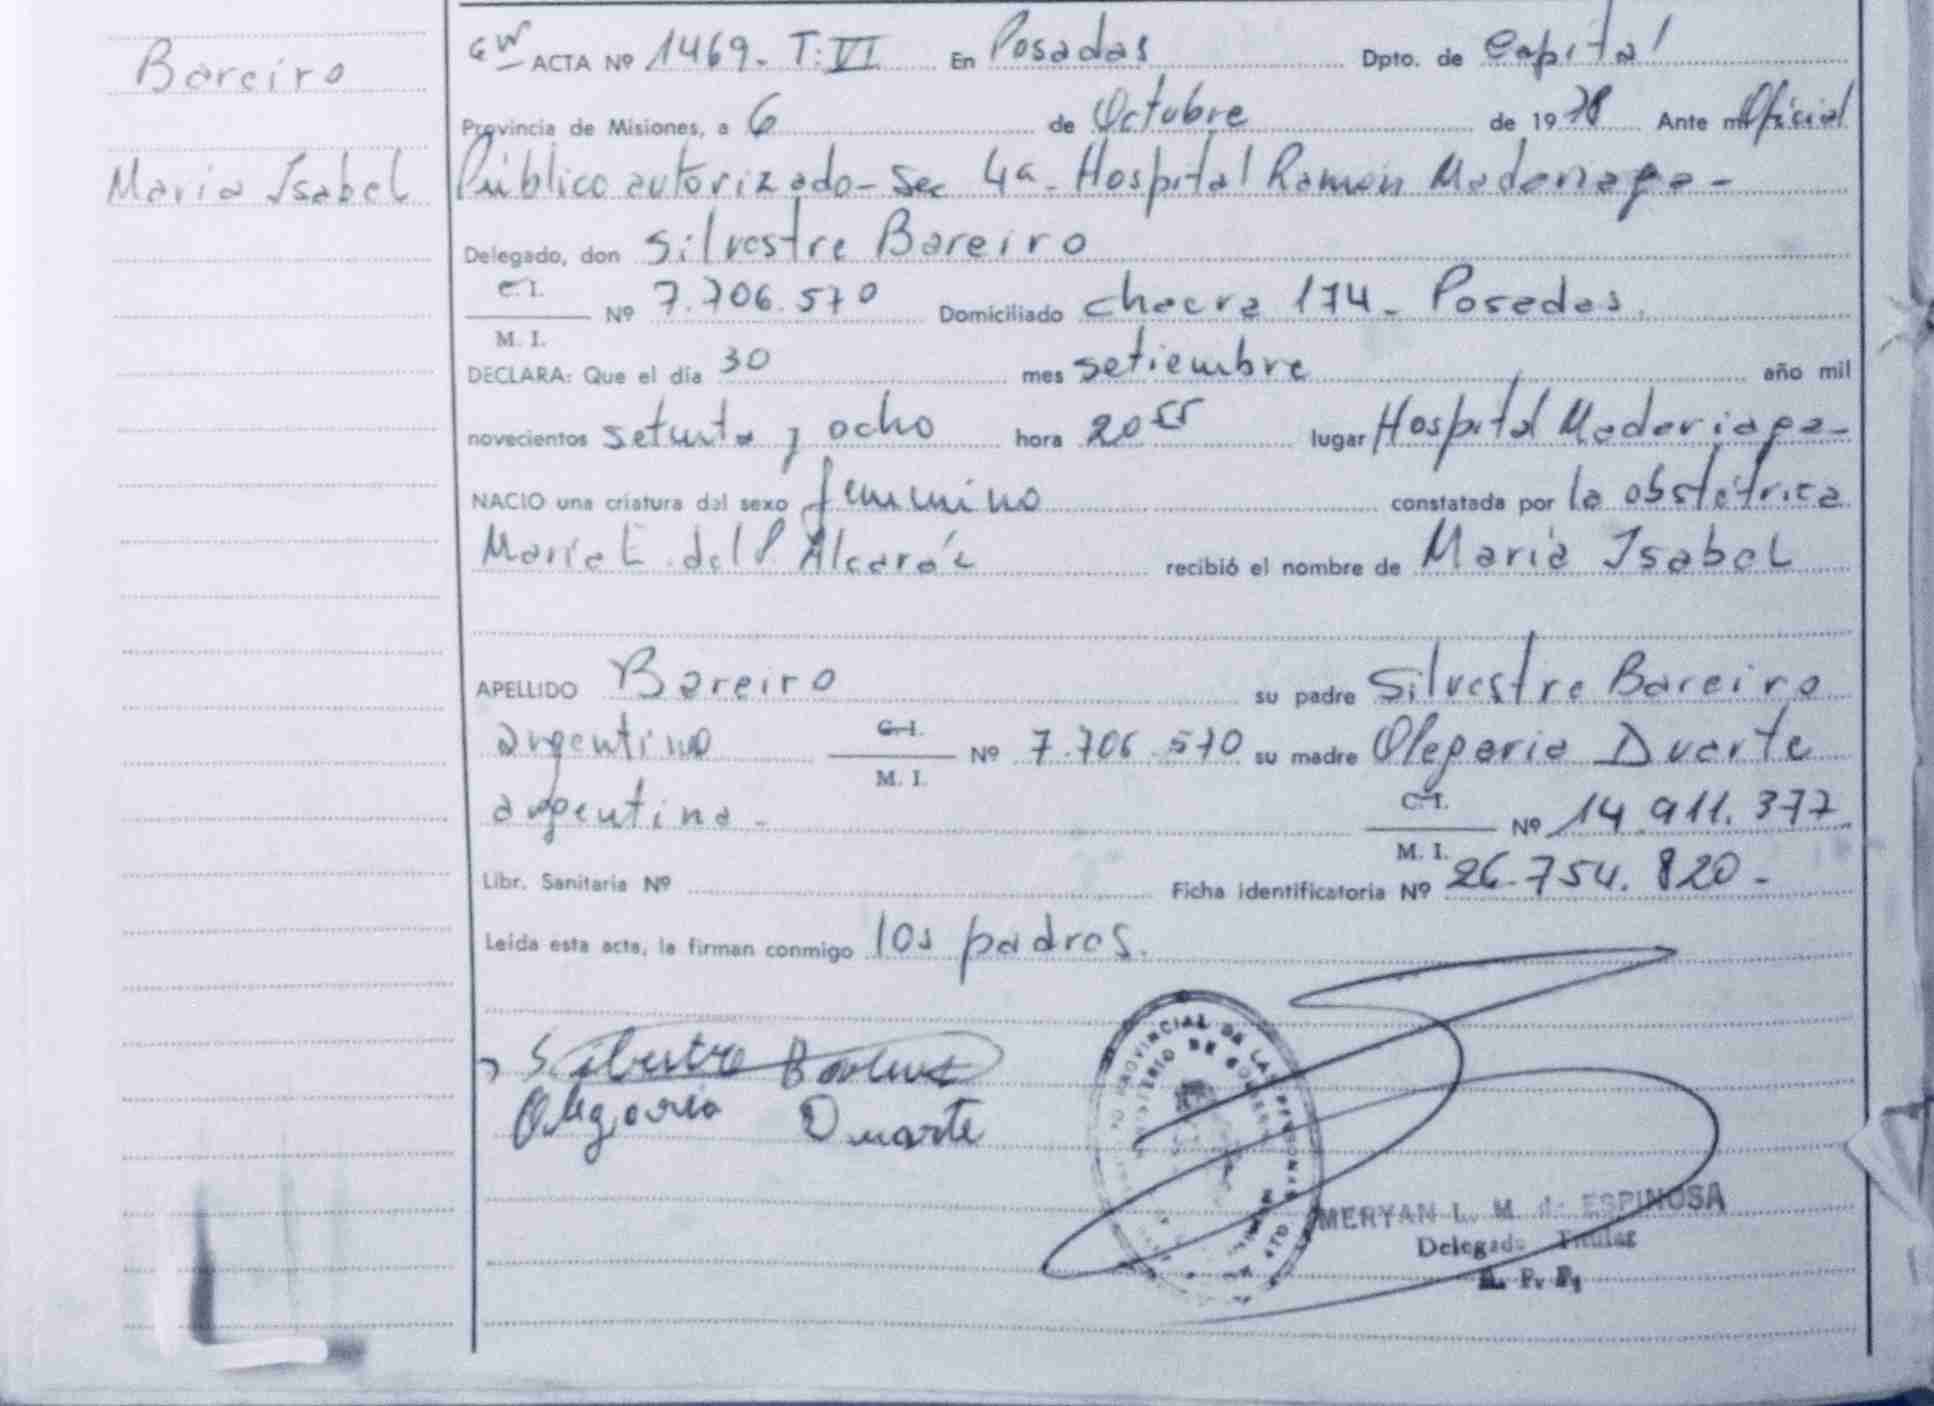 Bareiro
Maria Isabel
ACTA Nº 1469. T: VI En Posadas Dpto. de Capital
Provincia de Misiones, a 6 de Octubre de 1978 Ante mi Oficial
Público autorizado - Sec 4a - Hospital Ramón Madariaga -
Delegado, don Silvestre Bareiro
C. I.
M. I.
Nº 7.706.570 Domiciliado chacra 174 - Posadas.
DECLARA: Que el día 30 mes setiembre año mil
novecientos setenta y ocho hora 20 55 lugar Hospital Madariaga -
NACIO una criatura del sexo femenino constatada por la obstétrica
María E. del P. Alcaráz recibió el nombre de María Isabel
APELLIDO Bareiro su padre Silvestre Bareiro
argentino C. I.
M. I.
Nº 7.706.570 su madre Olegaria Duarte
argentina - C. I.
M. I.
Nº 14.911.377
Libr. Sanitaria Nº Ficha identificatoria Nº 26.754.820 -
Leída esta acta, la firman conmigo los padres.
Olegaria Duarte
MERYAN L. M. de ESPINOSA
Delegada Titular